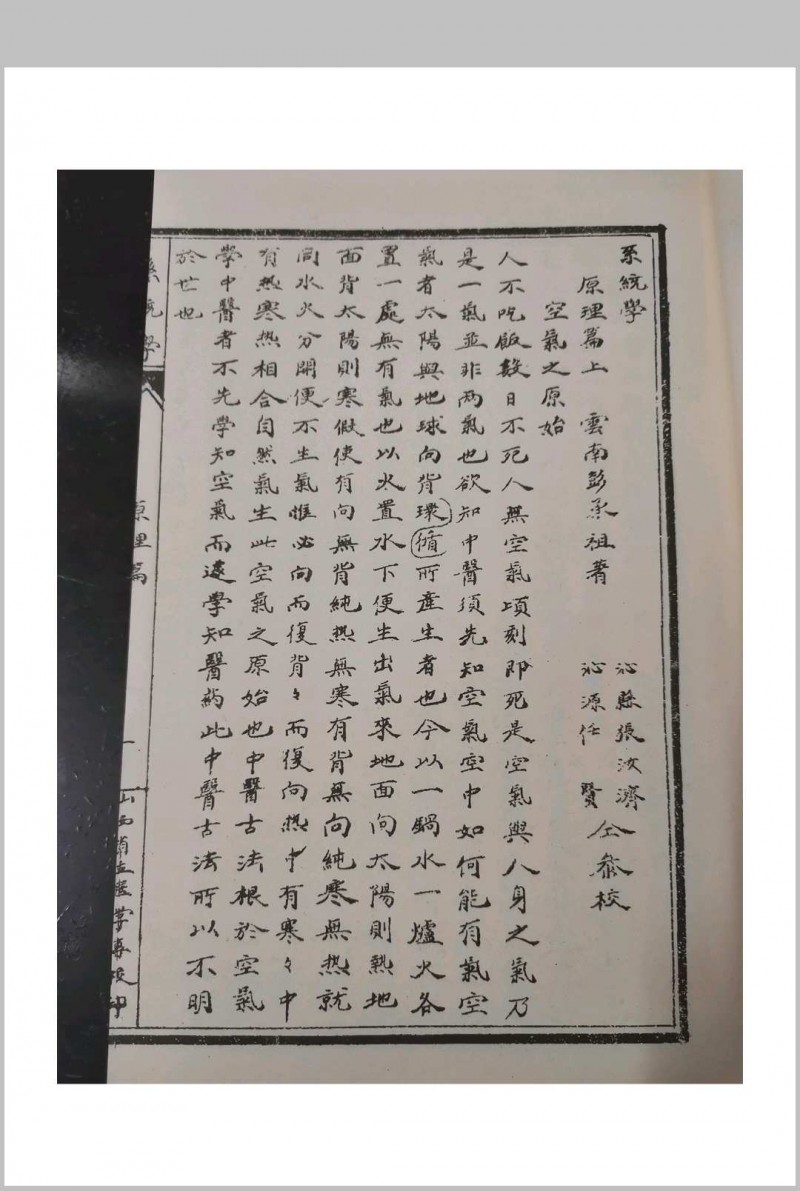 系統學
原理篇上　雲南彭承祖著　沁縣張汝濟　沁源任　賢　仝參校
空氣之原始
人不吃飯數日不死人無空氣頃刻即死是空氣與人身之氣乃
是一氣並非两氣也欲知中醫須先知空氣空中如何能有氣空
氣者太陽與地球向背環循所產生者也今以一鍋水一爐火各
置一處無有氣也以火置水下便生出氣來地面向太陽則熱地
面背太陽則寒假使有向無背純熱無寒有背無向純寒無热就
同水火分開便不生氣惟必向而復背々而復向热中有寒々中
有热寒热相合自然氣生此空氣之原始也中醫古法根於空氣
學中醫者不先學知空氣而遽學知醫药此中醫古法所以不明
於世也
系統學　原理篇　一　山西省立醫學專校印